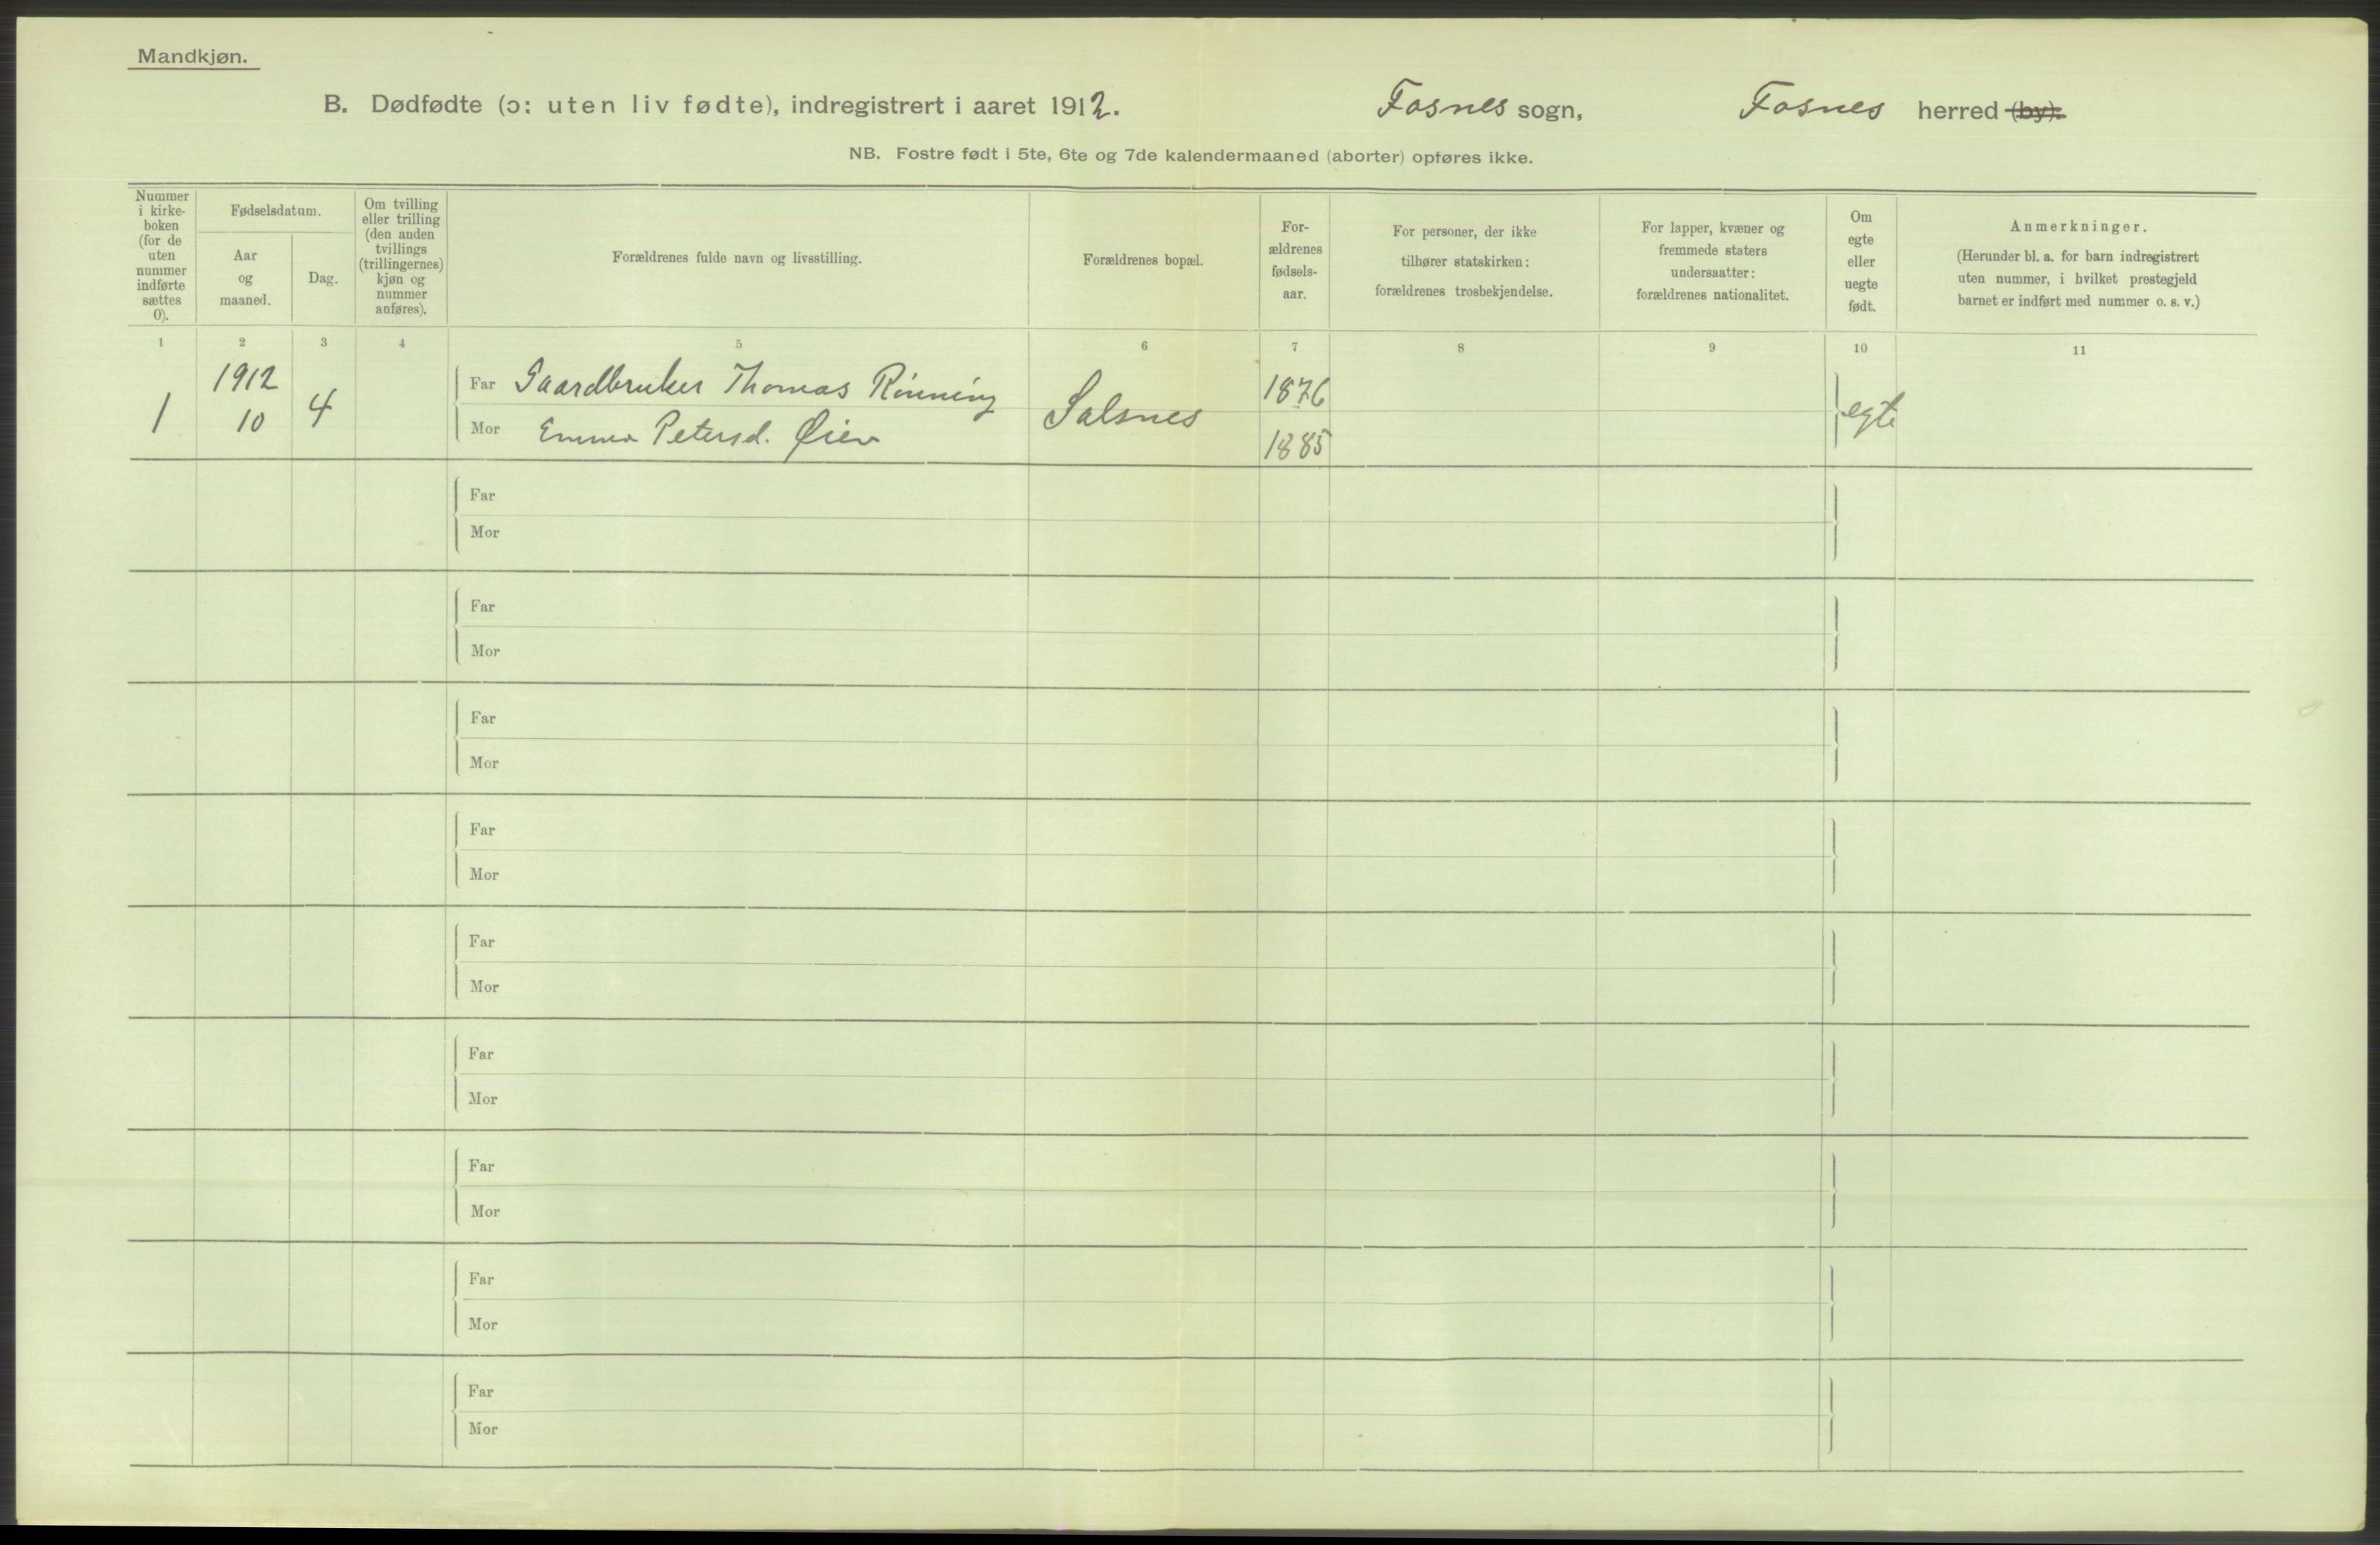 Mandkjøn.
B. Dødfødte (ɔ: uten liv fødte), indregistrert i aaret 1912. Fosnes sogn, Fosnes herred (by).
NB. Fostre født i 5te, 6te og 7de kalendermaaned (aborter) opføres ikke.
Nummer
i kirke-
boken
(for de
uten
nummer
indførte
sættes
0).
Fødselsdatum.
Aar
og
maaned.
Dag.
Om tvilling
eller trilling
(den anden
tvillings
(trillingernes)
kjøn og
nummer
anføres).
Forældrenes fulde navn og livsstilling.
Forældrenes bopæl.
For-
ældrenes
fødsels-
aar.
For personer, der ikke
tilhører statskirken:
forældrenes trosbekjendelse.
For lapper, kvæner og
fremmede staters
undersaatter:
forældrenes nationalitet.
Om
egte
eller
uegte
født.
Anmerkninger.
(Herunder bl. a. for barn indregistrert
uten nummer, i hvilket prestegjeld
barnet er indført med nummer o. s. v.)
1 2 3 4 5 6 7 8 9 10 11
1912
1 10 4
Far Gaardbruker Thomas Rønning
Mor Emma Petersd. Øien
Salsnes
1876
1885
egte
Far
Mor
Far
Mor
Far
Mor
Far
Mor
Far
Mor
Far
Mor
Far
Mor
Far
Mor
Far
Mor